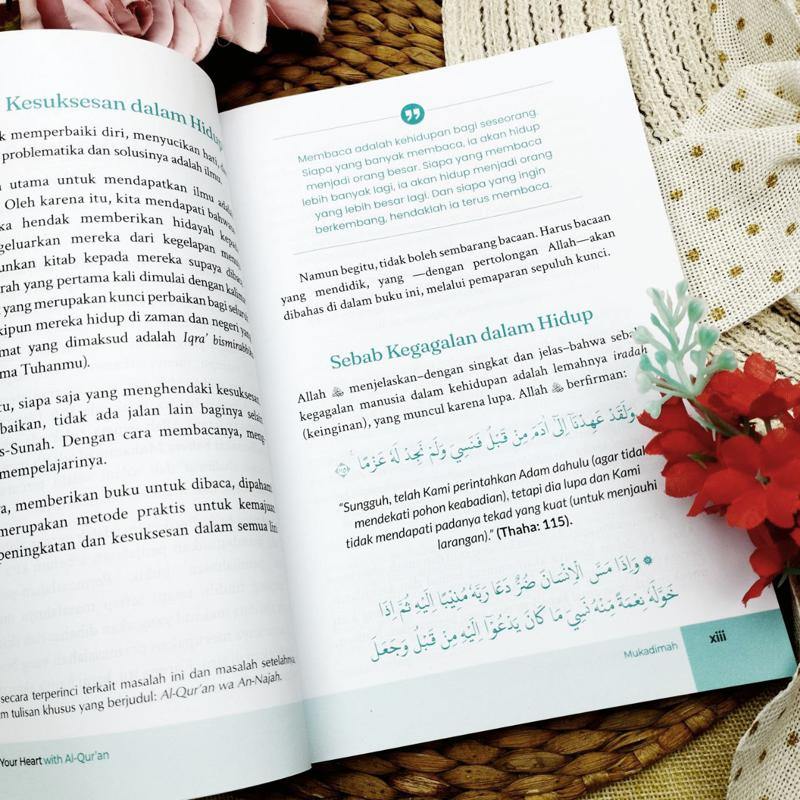 Kesuksesan dalam Hidup
memperbaiki diri, menyucikan hati,
problematika dan solusinya adalah ilmu.
utama untuk mendapatkan ilmu
Oleh karena itu, kita mendapati
hendak memberikan hidayah
mereka dari kegelapan
kitab kepada mereka supaya
yang pertama kali dimulai dengan
yang merupakan kunci perbaikan bagi
mereka hidup di zaman dan negeri
yang dimaksud adalah Iqra' bismirabbika
Tuhanmu).
siapa saja yang menghendaki kesuksesan
tidak ada jalan lain baginya
Dengan cara membacanya,
mempelajarinya.
memberikan buku untuk dibaca, dipahami
merupakan metode praktis untuk kemajuan
peningkatan dan kesuksesan dalam semua
secara terperinci terkait masalah ini dan masalah setelahnya
tulisan khusus yang berjudul: Al-Qur'an wa An-Najah.
Your Heart with Al-Qur'an
Membaca adalah kehidupan bagi seseorang.
Siapa yang banyak membaca, ia akan hidup
menjadi orang besar. Siapa yang membaca
lebih banyak lagi, ia akan hidup menjadi orang
yang lebih besar lagi. Dan siapa yang ingin
berkembang, hendaklah ia terus membaca.
Namun begitu, tidak boleh sembarang bacaan. Harus bacaan
yang mendidik, yang —dengan pertolongan Allah—akan
dibahas di dalam buku ini, melalui pemaparan sepuluh kunci.
Sebab Kegagalan dalam Hidup
Allah ﷻ menjelaskan–dengan singkat dan jelas–bahwa sebab
kegagalan manusia dalam kehidupan adalah lemahnya iradah
(keinginan), yang muncul karena lupa. Allah ﷻ berfirman:
وَلَقَدْ عَهِدْنَآ اِلٰٓى اٰدَمَ مِنْ قَبْلُ فَنَسِيَ وَلَمْ نَجِدْ لَهٗ عَزْمًا ࣖ ١١٥
"Sungguh, telah Kami perintahkan Adam dahulu (agar tidak
mendekati pohon keabadian), tetapi dia lupa dan Kami
tidak mendapati padanya tekad yang kuat (untuk menjauhi
larangan)." (Thaha: 115).
۞ وَاِذَا مَسَّ الْاِنْسَانَ ضُرٌّ دَعَا رَبَّهٗ مُنِيْبًا اِلَيْهِ ثُمَّ اِذَا
خَوَّلَهٗ نِعْمَةً مِّنْهُ نَسِيَ مَا كَانَ يَدْعُوْٓا اِلَيْهِ مِنْ قَبْلُ وَجَعَلَ
Mukadimah xiii